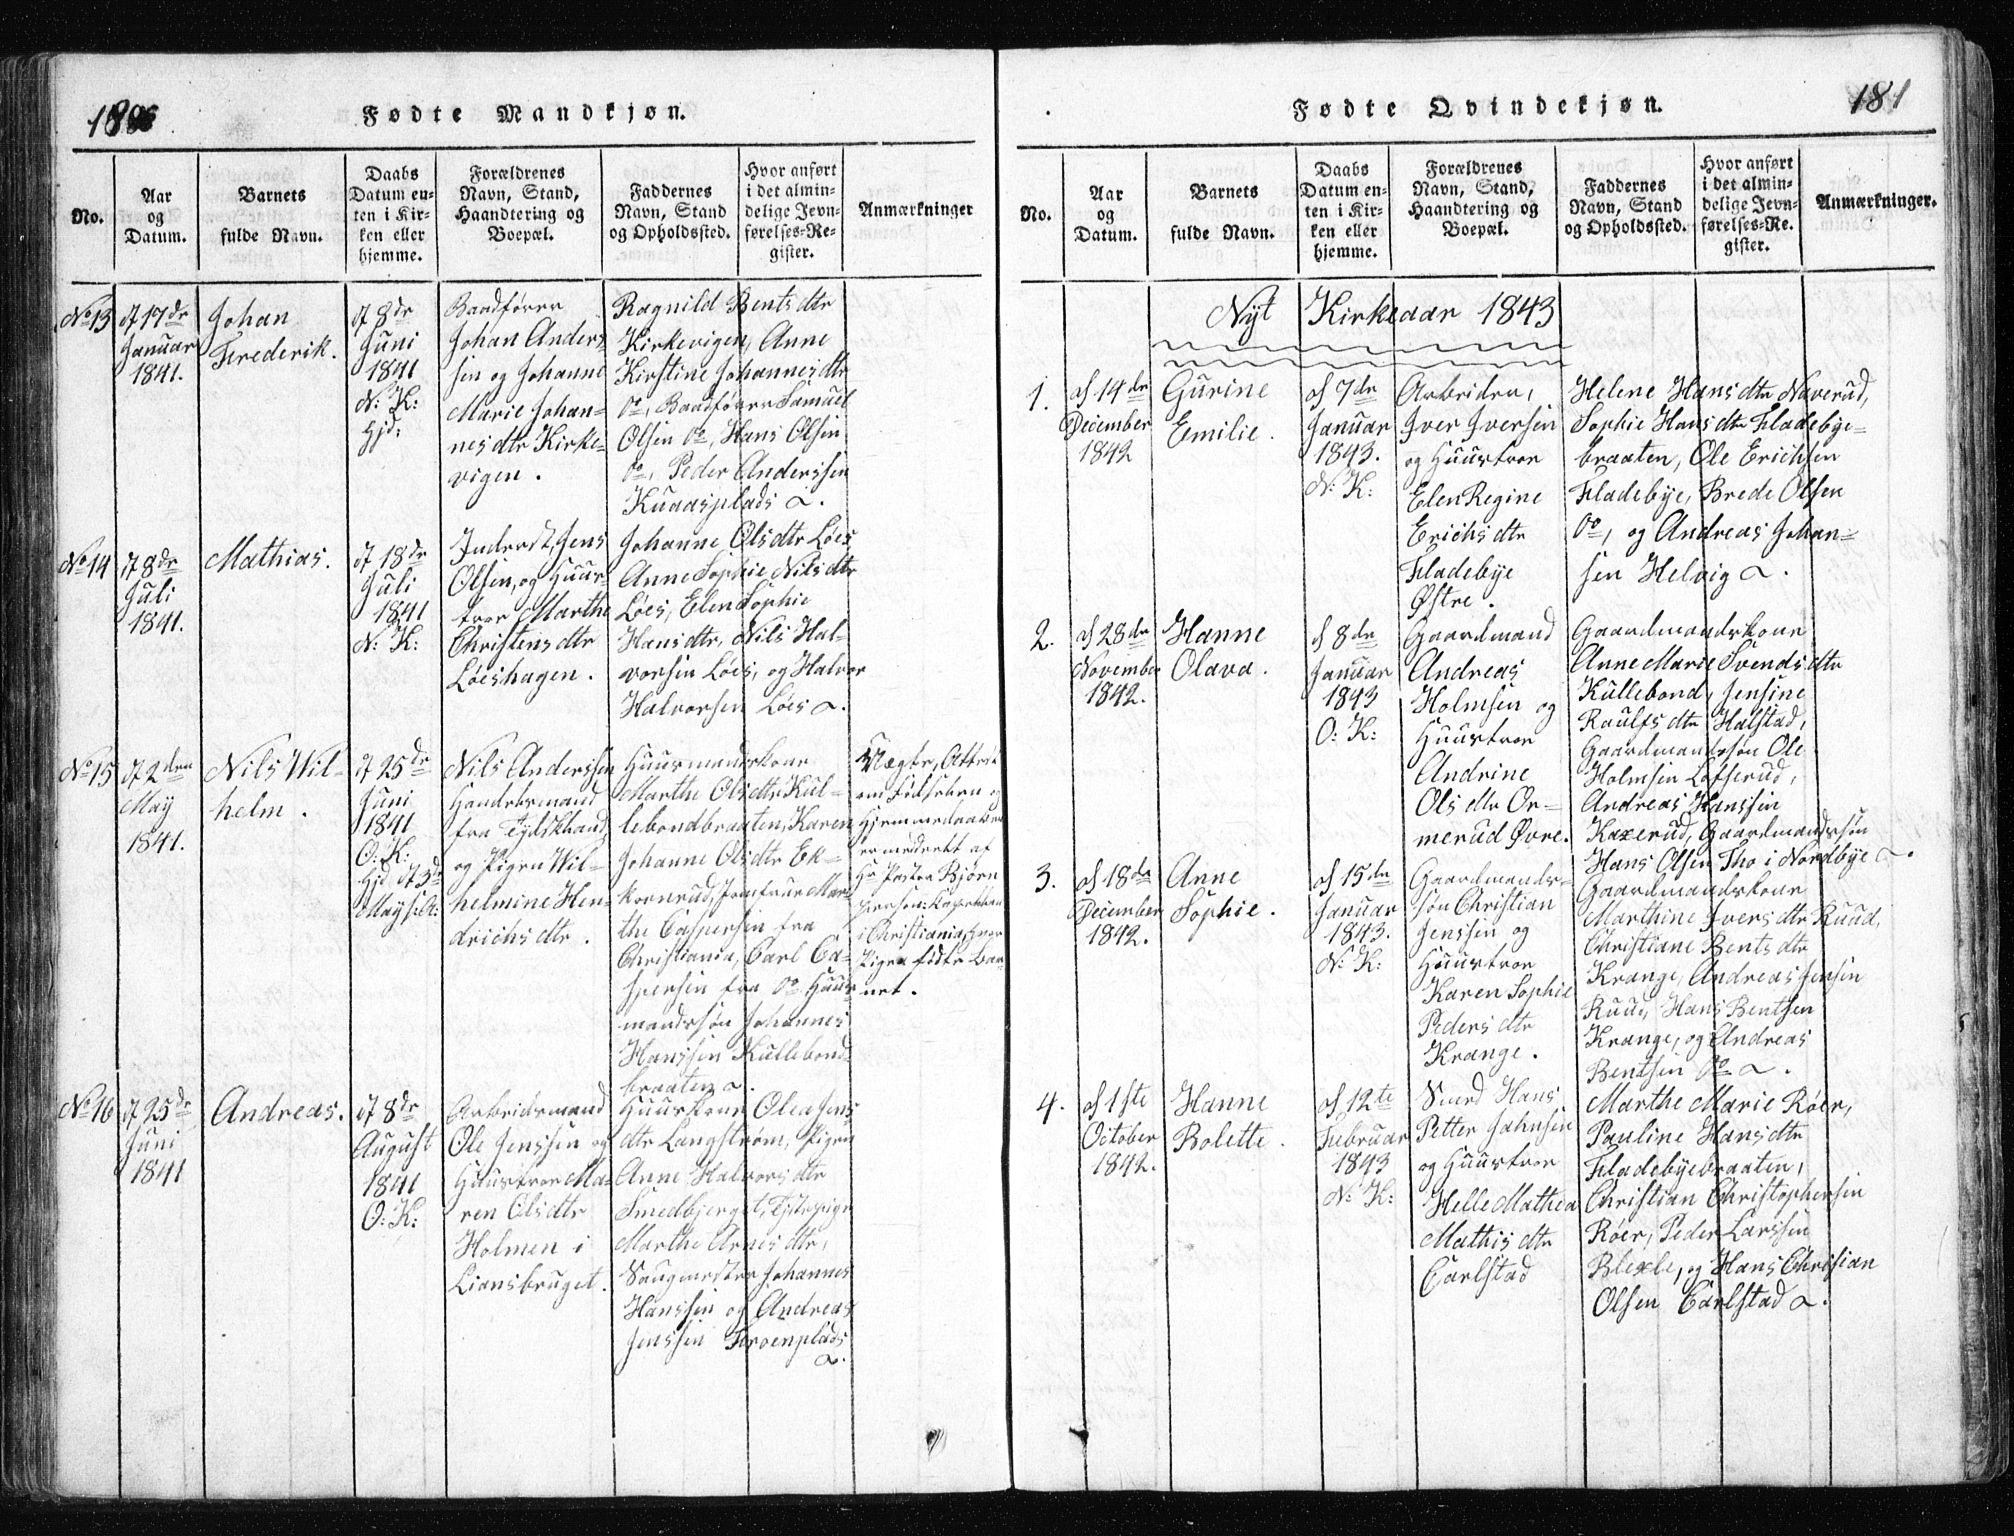 Fødte Mandkjøn.
No.
Aar
og
Datum.
Barnets
fulde Navn.
Daabs
Datum en-
ten i Kir-
ken eller
hjemme.
Forældrenes
Navn, Stand,
Haandtering og
Boepæl.
Faddernes
Navn, Stand
og Opholdssted.
Hvor anført
i det almin-
delige Jevn-
førelses-Re-
gister.
Anmærkninger
No 13
d 17de
Januar
1841.
Johan
Frederik.
d 8de
Juni
1841
N: K:
Hjd:
Baadfører
Johan Anders-
sen og Johanne
Marie Johan-
nesdtr Kirke-
vigen.
Ragnild Bentsdtr
Kirkevigen, Anne
Kirstine Johannesdtr
Do, Baadfører Samuel
Olsen Do, Hans Olsen
Do, Peder Anderssen
Kuaasplads
No 14
d 8de
Juli
1841.
Mathias.
d 18de
Juli
1841
N: K:
Inderst, Jens
Olsen, og Huus-
troe Marthe
Christensdtr
Løeshagen.
Johanne Olsdtr Løes
Anne Sophie Nilsdtr
Løes, Elen Sophie
Hansdtr, Nils Hal-
vorsen Løes, og Halvor
Halvorsen Løes
No 15
d 2den
May
1841.
Nils Wil-
helm.
d 25de
Juni
1841
O: K:
Hjd d 3de
May
Nils Anderssen
Handelsmand
fra Tydskland,
og Pigen Wil-
helmine Hen-
drichsdtr.
Huusmandskone
Marthe Olsdtr Kul-
lebondbraaten, Karen
Johanne Olsdtr Ek-
kornrud, Jomfrue Mar-
the Caspersen fra
Christiania, Carl Ca-
spersen fra Do Huus-
mandssøn Johannes
Hanssen Kullebond-
braaten
Ægte, Attest
om Fødselen og
Hjemmedaaben
er meddeelt af
Hr Pastor Bjørn
i Christiania, hvor
Pigen fødte Bar-
net.
No 16
d 25de
Juni
1841
Andreas.
d 8de
August
1841
O: K:
Arbeidsmand
Ole Jenssen og
Huustroe Ma-
ren Olsdtr
Holmen i
Liansbruget.
Huuskone Olea Jens-
dtr Langstrøm, Pigen
Anne Halvorsdtr
Smedbjerget,
Marthe Arnesdtr,
Saugmester Johannes
Hanssen og Andreas
Jenssen
Fødte Qvindekjøn.
181
No.
Aar
og
Datum.
Barnets
fulde Navn.
Daabs
Datum en-
ten i Kir-
ken eller
hjemme.
Forældrenes
Navn, Stand,
Haandtering og
Boepæl.
Faddernes
Navn, Stand
og Opholdssted.
Hvor anført
i det almin-
delige Jevn-
førelses-Re-
gister.
Anmærkninger.
Nyt Kirkeaar 1843
1.
d 14de
December
1842
Gurine
Emilie.
d 7de
Januar
1843.
N: K:
Arbeider,
Iver Iversen
og Huustroe
Elen Regine
Erichsdtr
Fladebye
Østre.
Helene Hansdtr Naverud,
Sophie Hansdtr Fladebye-
braaten, Ole Erichsen
Fladebye, Brede Olsen
Do, og Andreas Johan-
sen Helvig
2.
d 28de
November
1842.
Hanne
Olava.
d 8de
Januar
1843
O: K:
Gaardmand
Andreas
Holmsen og
Huustroe
Andrine
Olsdtr Or-
merud Øvre.
Gaardmandskone
Anne Marie Svendsdtr
Kullebond, Jensine
Raulfsdtr Halstad,
Gaardmandssøn Ole
Holmsen Lofserud,
Andreas Hanssen
Kaxerud, Gaardmandssøn
Hans Olsen Tho i Nordbye
3.
d 18de
December
1842.
Anne
Sophie.
d 15de
Januar
1843.
N: K:
Gaardmands-
søn Christian
Jenssen og
Huustroe
Karen Sophie
Pedersdtr
Krange.
Gaardmandskone
Marthine Iversdtr Ruud,
Christiane Bentsdtr
Krange, Andreas Jensen
Ruud, Hans Bentsen
Krange, og Andreas
Bentsen Do
4.
d 1ste
October
1842.
Hanne
Bolette.
d 12te
Februar
1843
N: K:
Smed Hans
Petter Jahnsen
og Huustroe
Helle Mathea
Mathisdtr
Carlstad
Marthe Marie Røer,
Pauline Hansdtr
Fladebyebraaten,
Christian Christophersen
Røer, Peder Larssen
Blexle, og Hans Chrisian
Olsen Carlstad